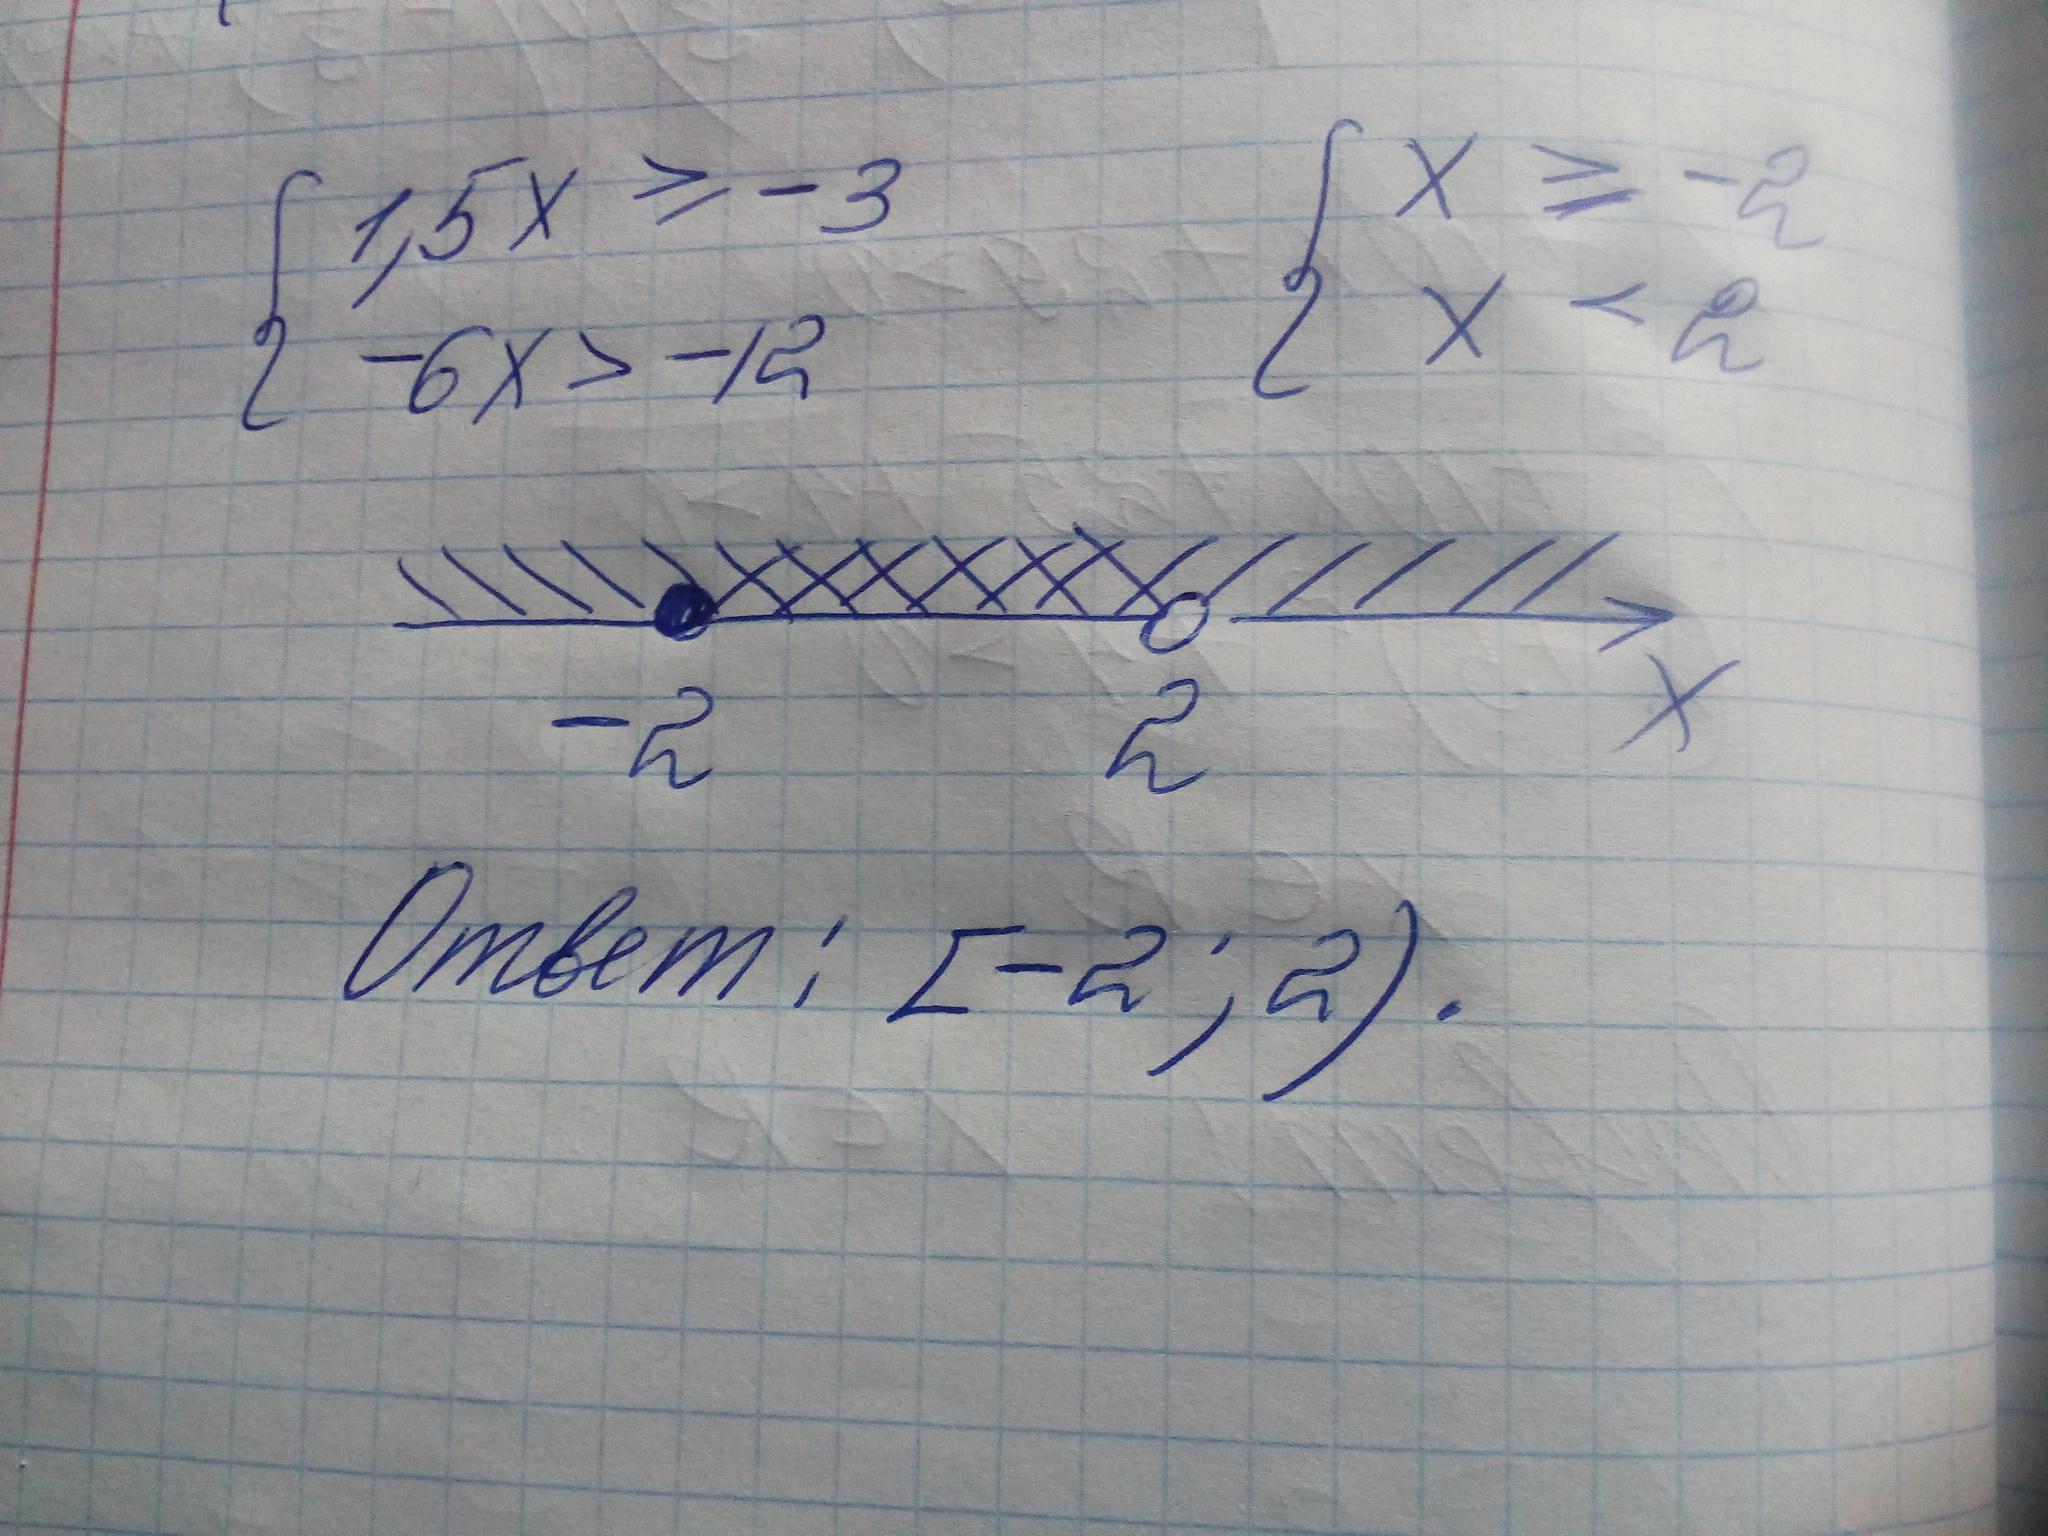 { 1,5x ⩾ -3
-6x > -12
{ x ⩾ -2
x < 2
-2 2 x
Ответ: [-2; 2).